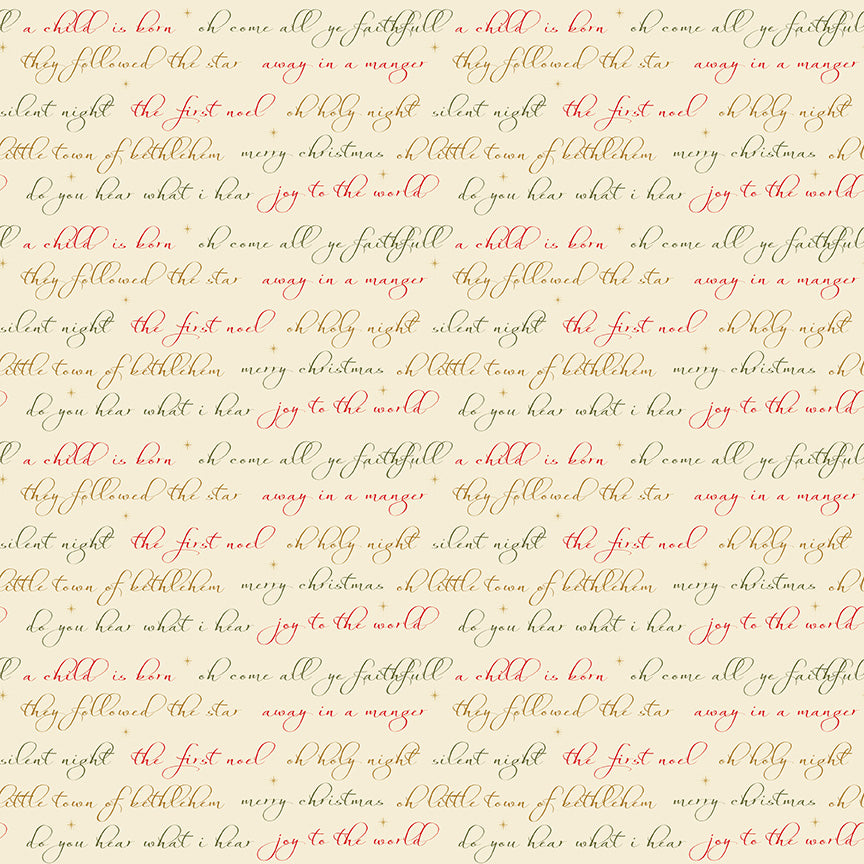 ll a child is born oh come all ye faithfull a child is born oh come all ye faithfull
they followed the star away in a manger they followed the star away in a manger
silent night the first noel oh holy night silent night the first noel oh holy night
little town of bethlehem merry christmas oh little town of bethlehem merry christmas oh l
do you hear what i hear joy to the world do you hear what i hear joy to the world
ll a child is born oh come all ye faithfull a child is born oh come all ye faithfull
they followed the star away in a manger they followed the star away in a manger
silent night the first noel oh holy night silent night the first noel oh holy night
little town of bethlehem merry christmas oh little town of bethlehem merry christmas oh l
do you hear what i hear joy to the world do you hear what i hear joy to the world
ll a child is born oh come all ye faithfull a child is born oh come all ye faithfull
they followed the star away in a manger they followed the star away in a manger
silent night the first noel oh holy night silent night the first noel oh holy night
little town of bethlehem merry christmas oh little town of bethlehem merry christmas oh l
do you hear what i hear joy to the world do you hear what i hear joy to the world
ll a child is born oh come all ye faithfull a child is born oh come all ye faithfull
they followed the star away in a manger they followed the star away in a manger
silent night the first noel oh holy night silent night the first noel oh holy night
little town of bethlehem merry christmas oh little town of bethlehem merry christmas oh l
do you hear what i hear joy to the world do you hear what i hear joy to the world